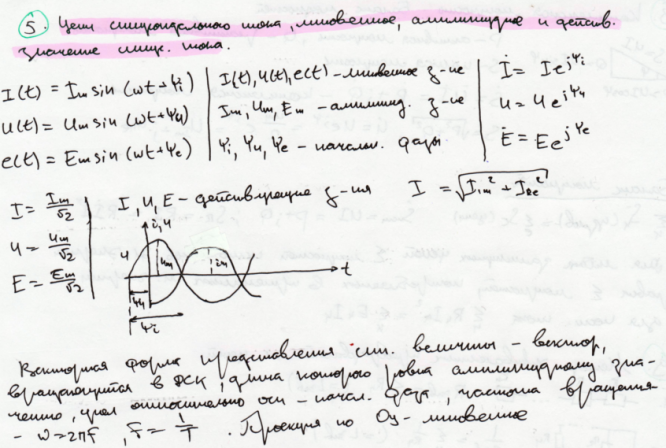 5. Цепи синусоидального тока, мгновенное, амплитудное и действ.
значение синус. тока.
I(t) = Im sin (ωt + Ψi)
U(t) = Um sin (ωt + Ψu)
e(t) = Em sin (ωt + Ψe)
I(t), U(t), e(t) - мгновенное з-ие
Im, Um, Em - амплитуд. з-ие
Ψi, Ψu, Ψe - начальн. фазы
İ = Ie^jΨi
U = Ue^jΨu
Ė = Ee^jΨe
I = Im/√2
U = Um/√2
E = Em/√2
I, U, E - действующие з-ния
I = √(I1m² + I2e²)
i, u
u
Um
im
t
Ψu
Ψi
Векторная форма представления син. величины - вектор,
вращающийся в ДСК, длина которого равна амплитудному зна-
чению, угол относительно оси - начал. фаза, частота вращения
- ω=2πf, f = 1/T. Проекция на Oy - мгновенное